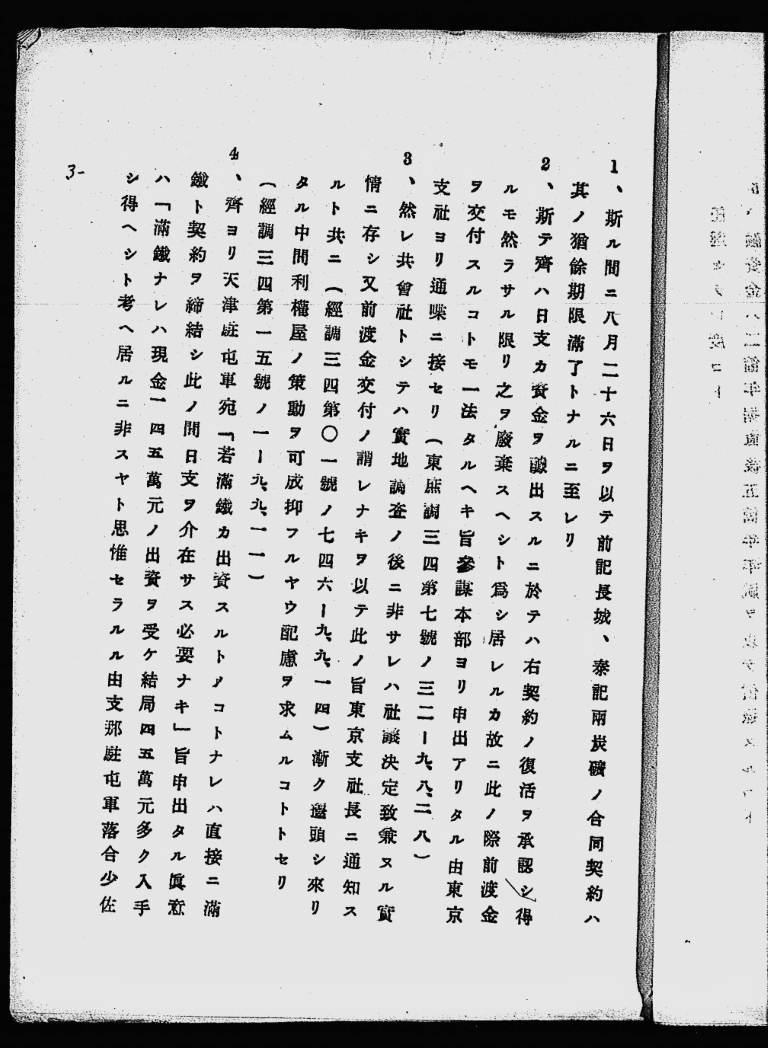 1、斯ル間ニ八月二十六日ヲ以テ前記長城、泰記兩炭礦ノ合同契約ハ
其ノ猶餘期限滿了トナルニ至レリ
2、斯テ齊ハ日支カ資金ヲ醵出スルニ於テハ右契約ノ復活ヲ承認シ得
ルモ然ラサル限リ之ヲ廢棄スヘシト爲シ居レルカ故ニ此ノ際前渡金
ヲ交付スルコトモ一法タルヘキ旨參謀本部ヨリ申出アリタル由東京
支社ヨリ通喋ニ接セリ(東庶調三四第七號ノ三二ー九、八、二八)
3、然レ共會社トシテハ實地調査ノ後ニ非サレハ社議決定致兼ヌル實
情ニ存シ又前渡金交付ノ謂レナキヲ以テ此ノ旨東京支社長ニ通知ス
ルト共ニ(經調三四第〇一號ノ七四六ー九、九、一四)漸ク擡頭シ來リ
タル中間利權屋ノ策動ヲ可成抑フルヤウ配慮ヲ求ムルコトトセリ
(經調三四第一五號ノ一ー九、九、一一)
4、齊ヨリ天津駐屯軍宛「若滿鐵カ出資スルトノコトナレハ直接ニ滿
鐵ト契約ヲ締結シ此ノ間日支ヲ介在サス必要ナキ」旨申出タル眞意
ハ「滿鐵ナレハ現金一四五萬元ノ出資ヲ受ケ結局四五萬元多ク入手
シ得ヘシト考ヘ居ルニ非スヤト思惟セラルル由支那駐屯軍落合少佐
3-